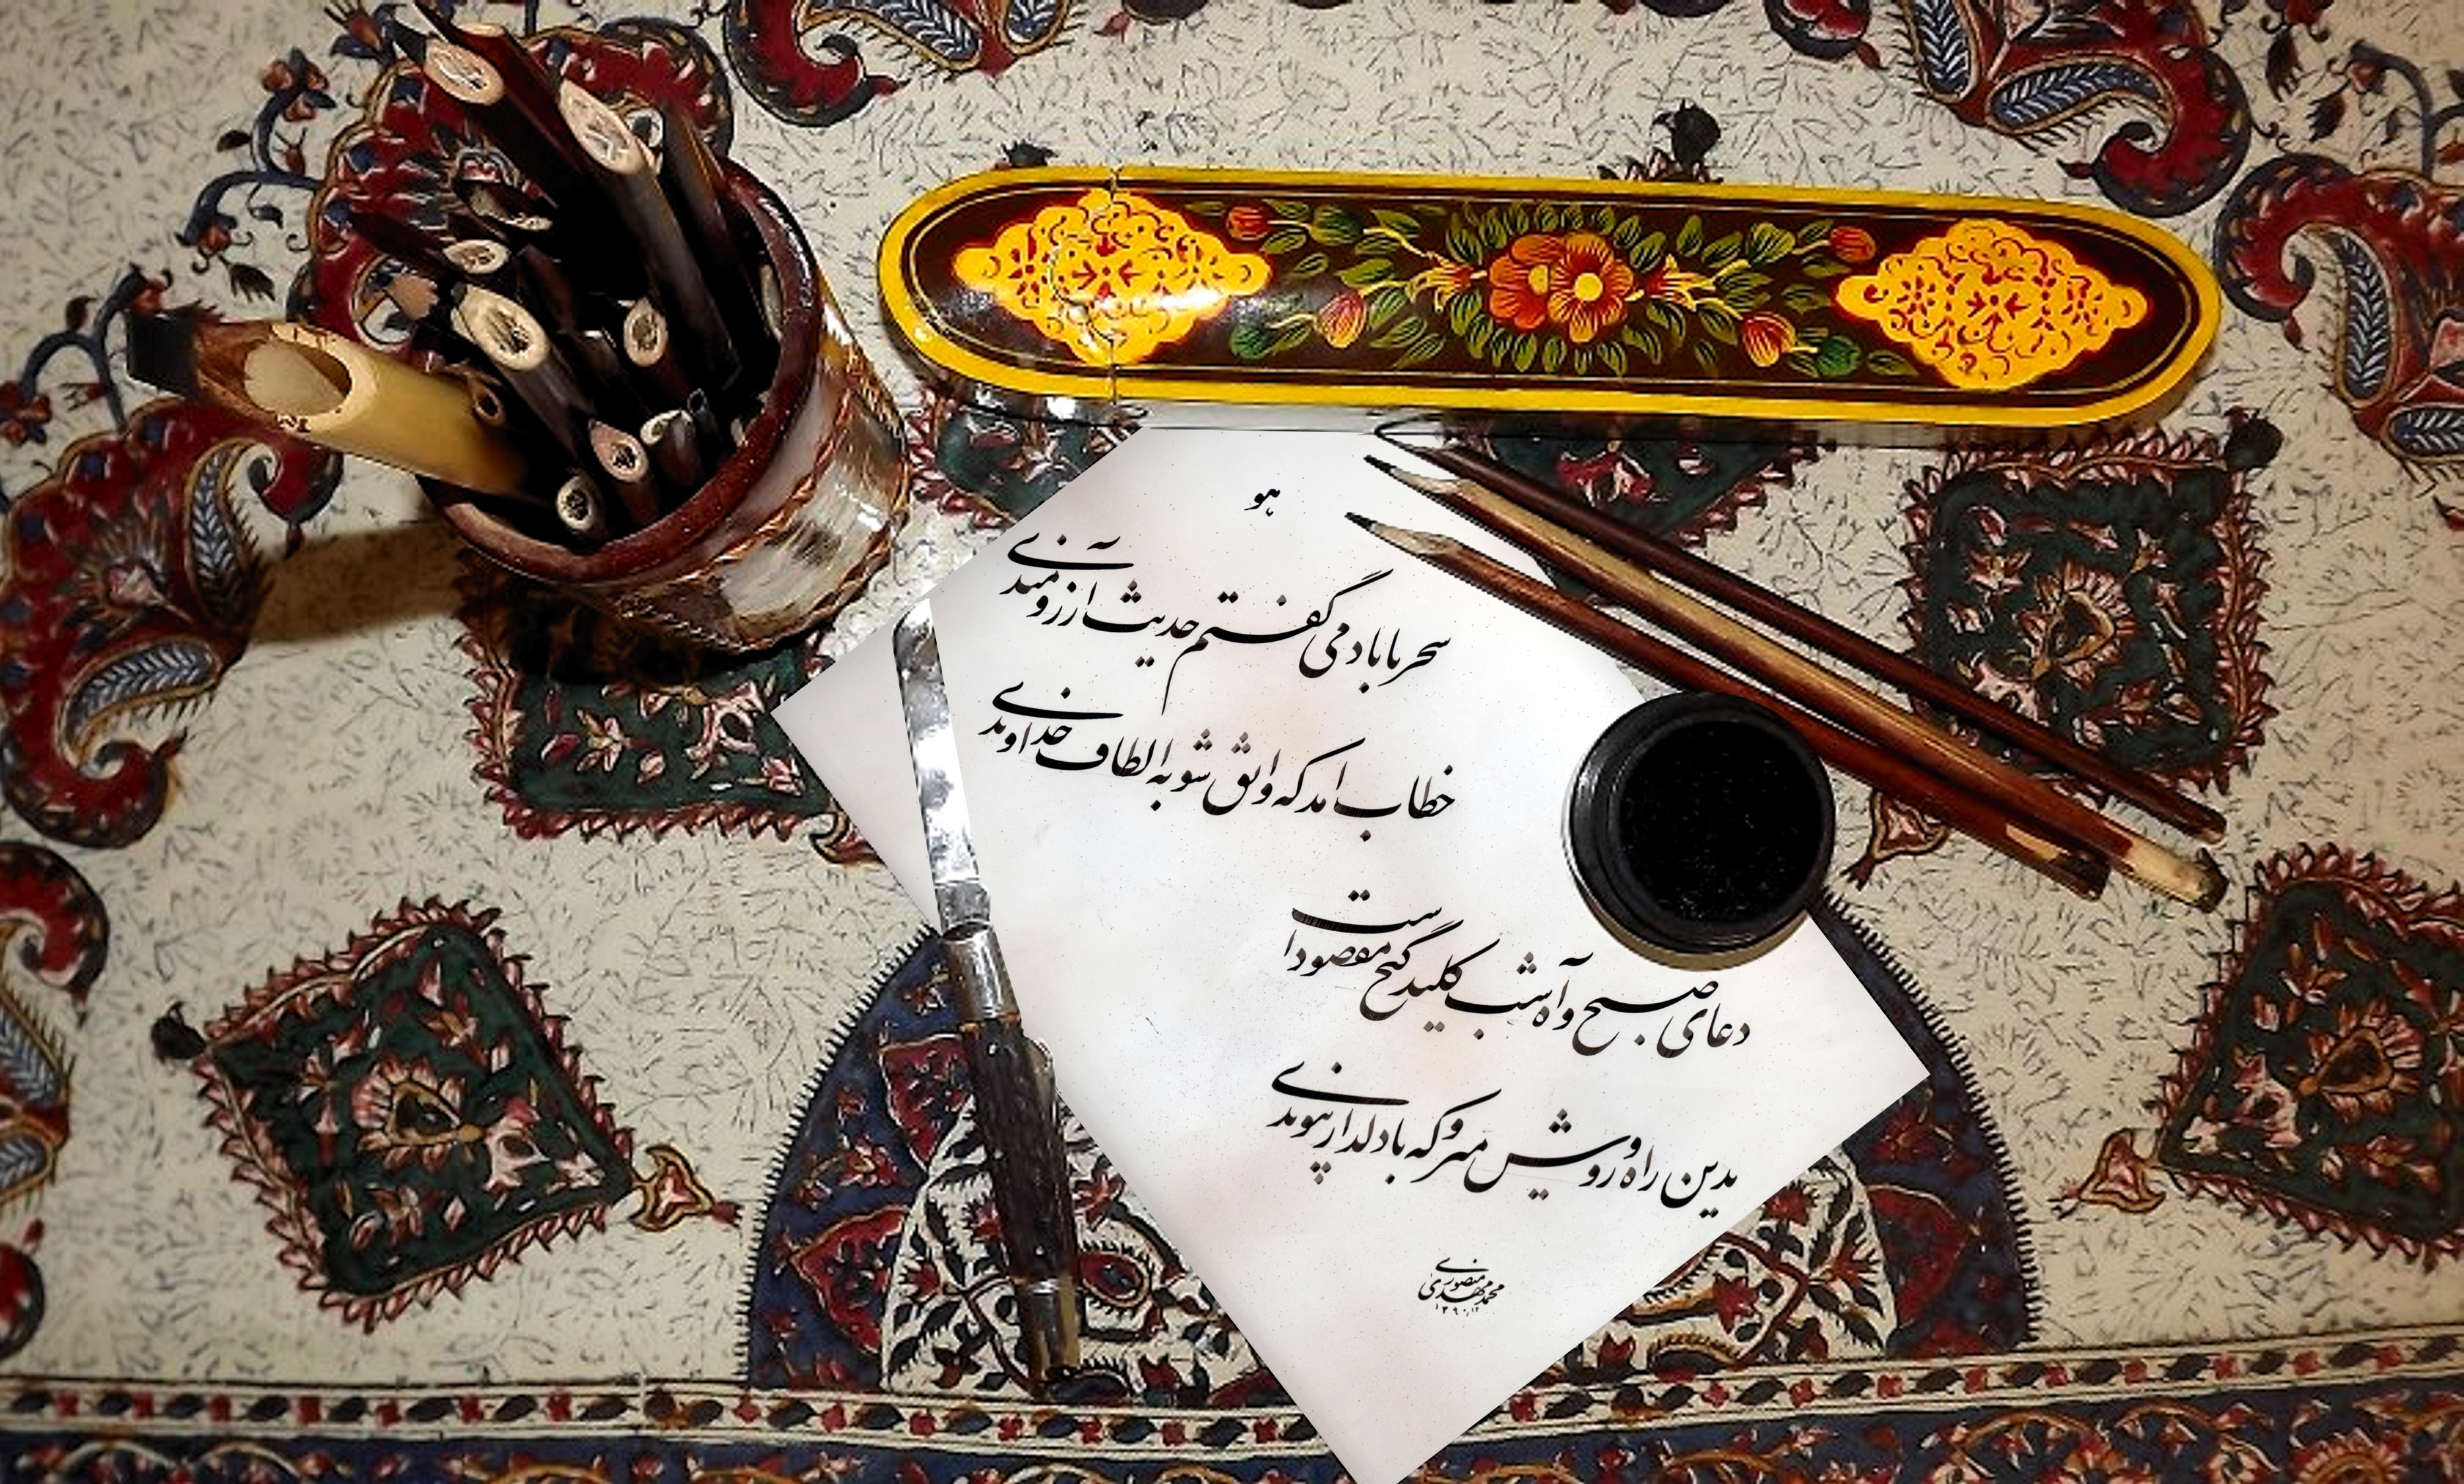 هو
سحر با باد می گفتم حدیث آرزومندی
خطاب آمد که واثق شو به الطاف خداوندی
دعای صبح و آه شب کلید گنج مقصود است
بدین راه و روش میرو که با دلدار پیوندی
محمدمهدی منصوری
۱۳۹۰/۱۲